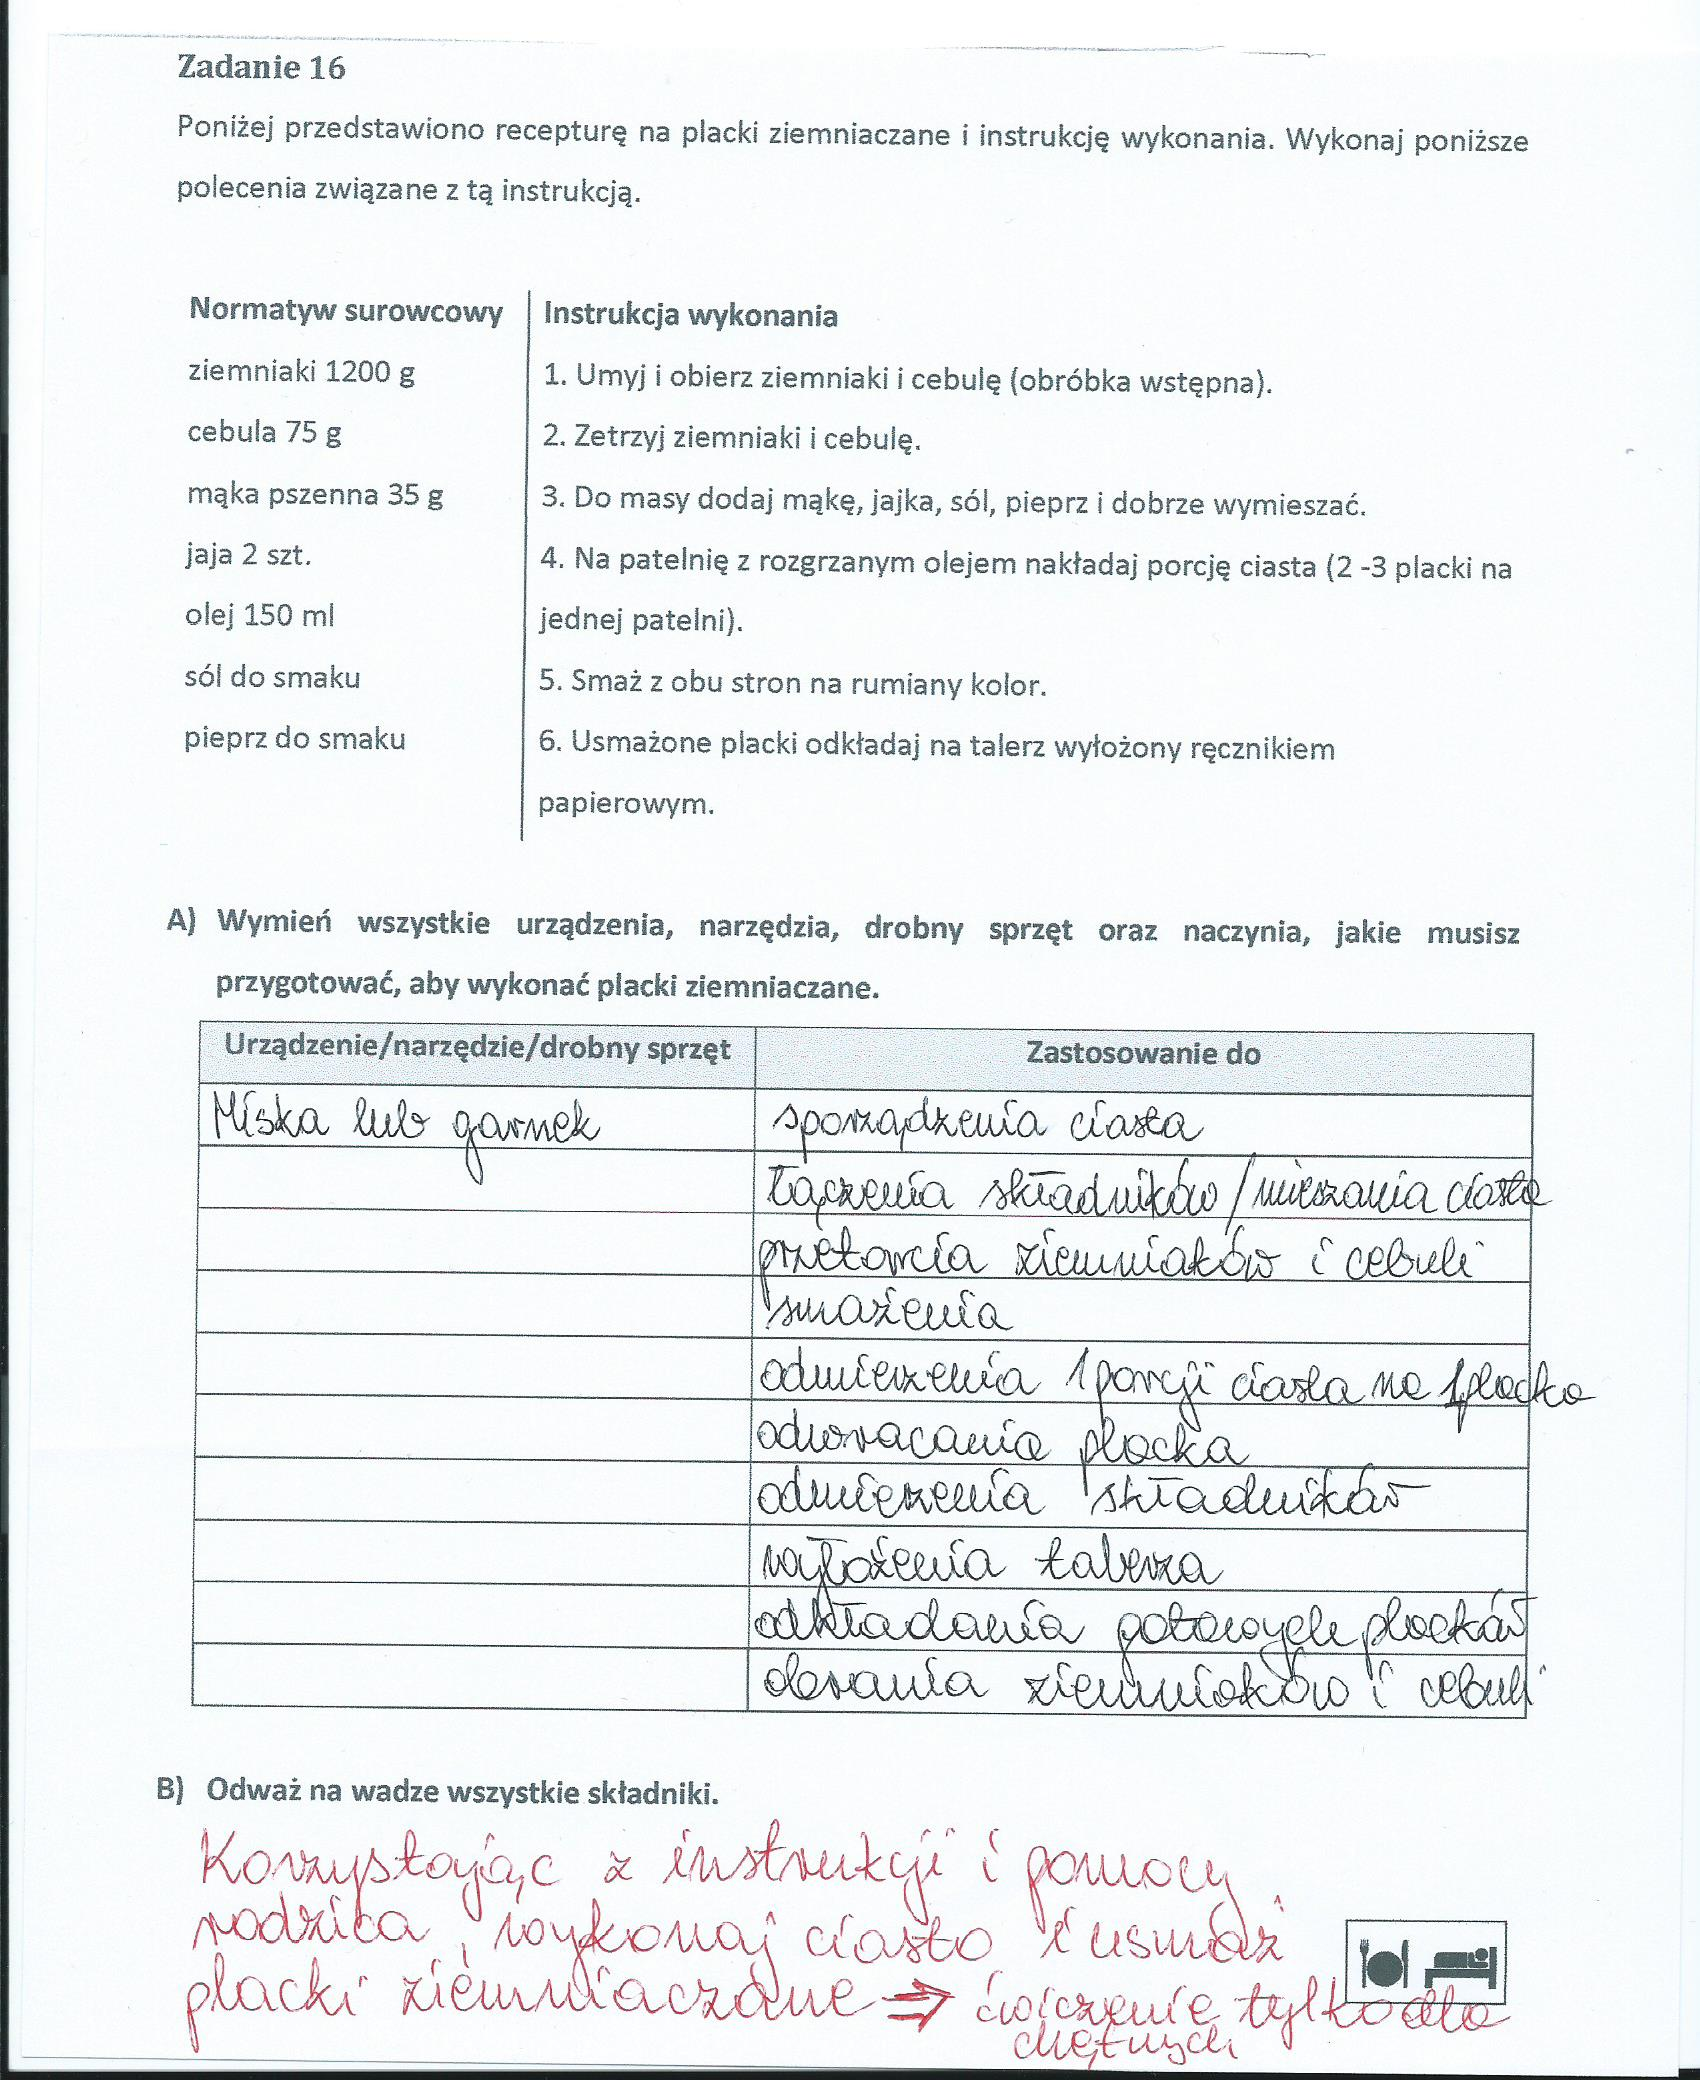 Zadanie 16
Poniżej przedstawiono recepturę na placki ziemniaczane i instrukcję wykonania. Wykonaj poniższe
polecenia związane z tą instrukcją.
Normatyw surowcowy
ziemniaki 1200 g
cebula 75 g
mąka pszenna 35 g
jaja 2 szt.
olej 150 ml
sól do smaku
pieprz do smaku
Instrukcja wykonania
1. Umyj i obierz ziemniaki i cebulę (obróbka wstępna).
2. Zetrzyj ziemniaki i cebulę.
3. Do masy dodaj mąkę, jajka, sól, pieprz i dobrze wymieszać.
4. Na patelnię z rozgrzanym olejem nakładaj porcję ciasta (2 -3 placki na
jednej patelni).
5. Smaż z obu stron na rumiany kolor.
6. Usmażone placki odkładaj na talerz wyłożony ręcznikiem
papierowym.
A) Wymień wszystkie urządzenia, narzędzia, drobny sprzęt oraz naczynia, jakie musisz
przygotować, aby wykonać placki ziemniaczane.
Urządzenie/narzędzie/drobny sprzęt Zastosowanie do
Miska lub garnek sporządzenia ciasta
łączenia składników / mieszania ciasta
przetarcia ziemniaków i cebuli
smażenia
odmierzenia 1 porcji ciasta na 1 placka
odwracania placka
odmierzenia składników
wyłożenia talerza
odkładania gotowych placków
obrania ziemniaków i cebuli
B) Odważ na wadze wszystkie składniki.
Korzystając z instrukcji i pomocy
rodzica, wykonaj ciasto i usmaż
placki ziemniaczane ⇒ ćwiczenie tylko dla
chętnych